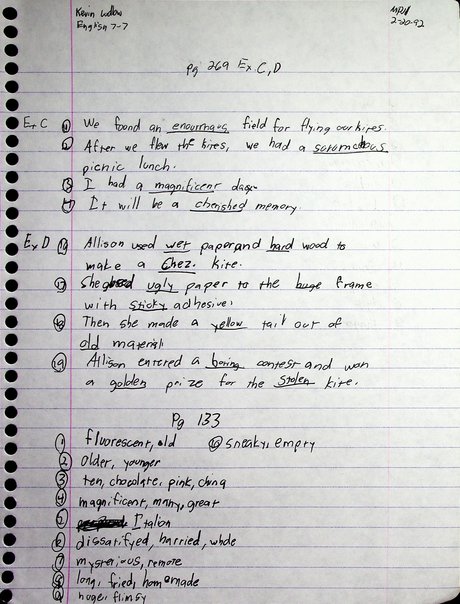 Kevin Ludlow
English 7-7
2-20-92
Pg 269 Ex C, D
Ex C 1 We found an enourmous field for flying our kites.
2 After we flew the kites, we had a
picnic lunch.
3 I had a magnificent day.
4 It will be a cherished memory.
Ex D 16 Allison used wet paper and hard wood to
make a Chez. kite.
17 She used ugly paper to the huge frame
with sticky adhesive.
18 Then she made a yellow tail out of
old material.
19 Allison entered a boring contest and won
a golden prize for the stolen kite.
Pg 133
1 fluorescent, old 10 sneaky, empty
2 older, younger
3 ten, chocolate, pink, ching
4 magnificent, many, great
5 Italian
6 dissatifyed, harried, whole
7 mysterious, remote
8 long, fried, homemade
9 huge, flimsy